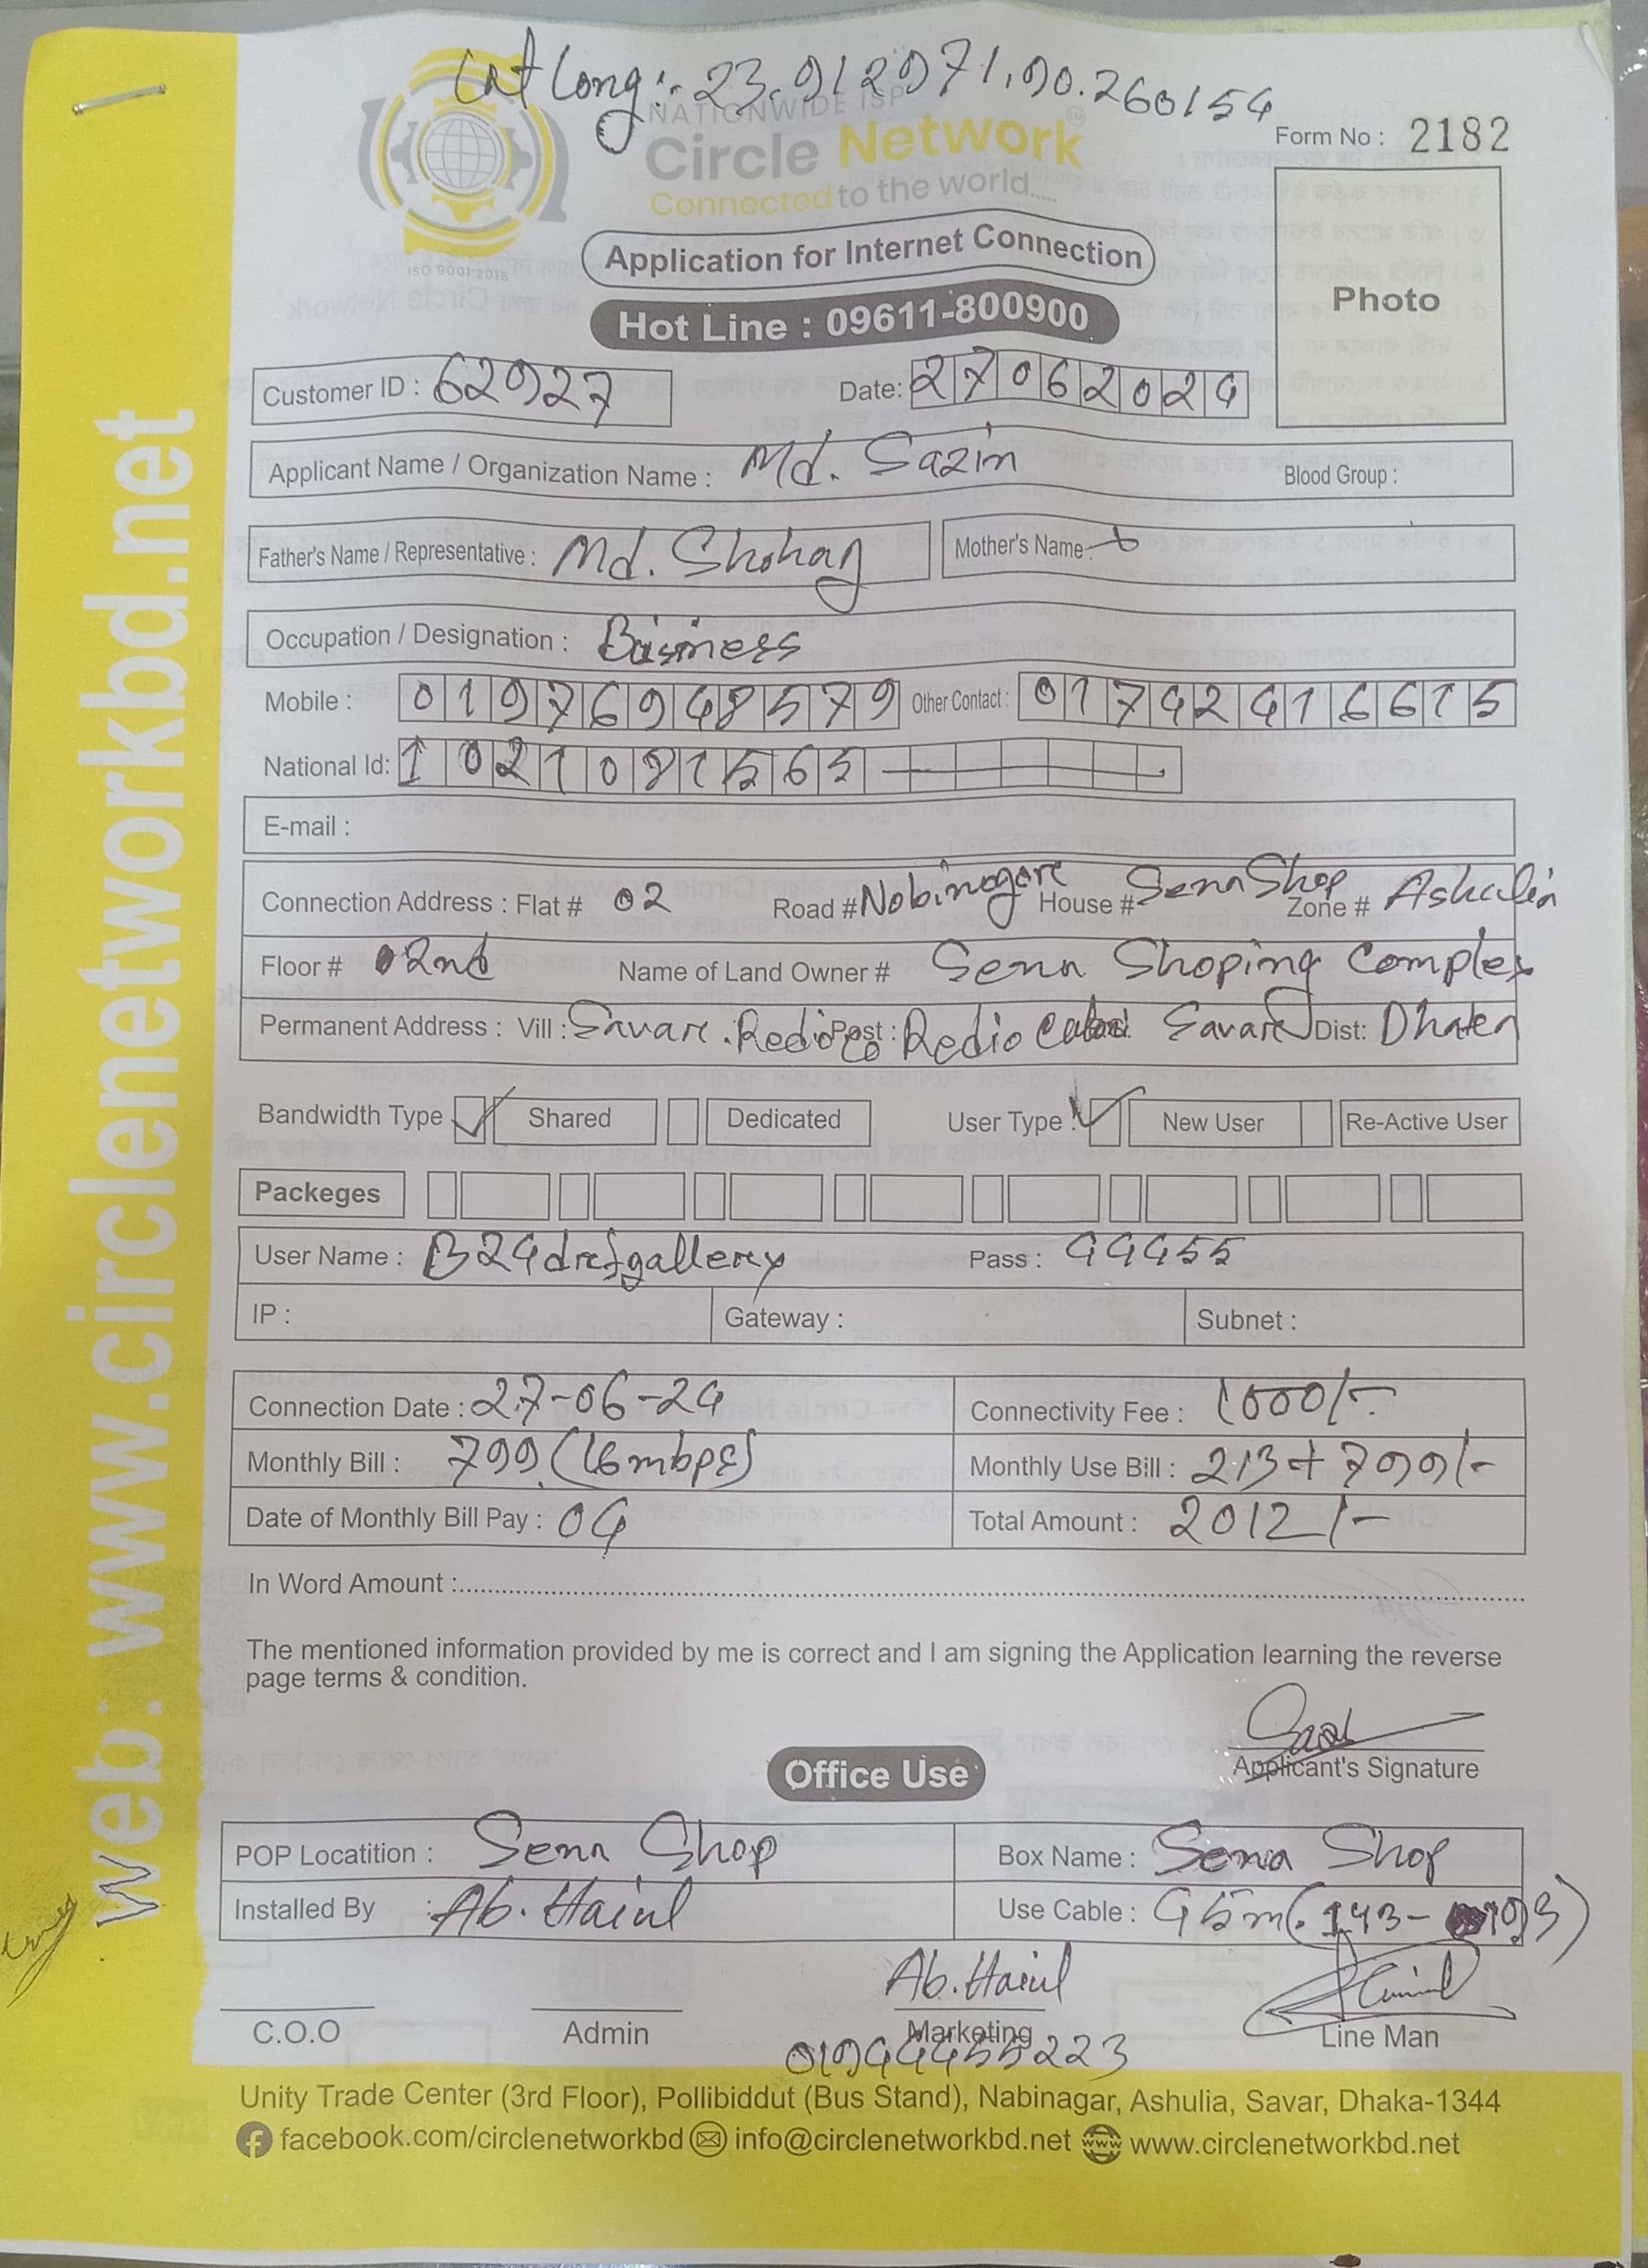 Lat Long:- 23.912971,90.260154
NATIONWIDE ISP
Circle Network
Connected to the world.....
ISO 9001:2015
Form No : 2182
Application for Internet Connection
Photo
Hot Line : 09611-800900
Customer ID : 62927 Date: 27062024
Applicant Name / Organization Name : Md. Sazin Blood Group :
Father's Name / Representative : Md. Shohag Mother's Name :
Occupation / Designation : Business
Mobile : 01976948579 Other Contact : 01742416615
National Id: 1021081565
E-mail :
Connection Address : Flat # 02 Road # Nobinogore House # Sena Shop Zone # Ashulia
Floor # 02nd Name of Land Owner # Sena Shoping Complex
Permanent Address : Vill : Savare . Redio Co Post : Redio Savare Dist: Dhaka
Bandwidth Type Shared Dedicated User Type : New User Re-Active User
Packeges
User Name : B24drefgallery Pass : 44455
IP : Gateway : Subnet :
Connection Date : 27-06-24 Connectivity Fee : 1000/-
Monthly Bill : 799 (16mbps) Monthly Use Bill : 213+799/-
Date of Monthly Bill Pay : 04 Total Amount : 2012/-
In Word Amount :
The mentioned information provided by me is correct and I am signing the Application learning the reverse
page terms & condition.
Applicant's Signature
Office Use
POP Locatition : Sena Shop Box Name : Sena Shop
Installed By : Ab. Haiul Use Cable : 45m (143-193)
Ab. Haiul
C.O.O Admin Marketing Line Man
01944455223
Unity Trade Center (3rd Floor), Pollibiddut (Bus Stand), Nabinagar, Ashulia, Savar, Dhaka-1344
facebook.com/circlenetworkbd info@circlenetworkbd.net www.circlenetworkbd.net
web: www.circlenetworkbd.net